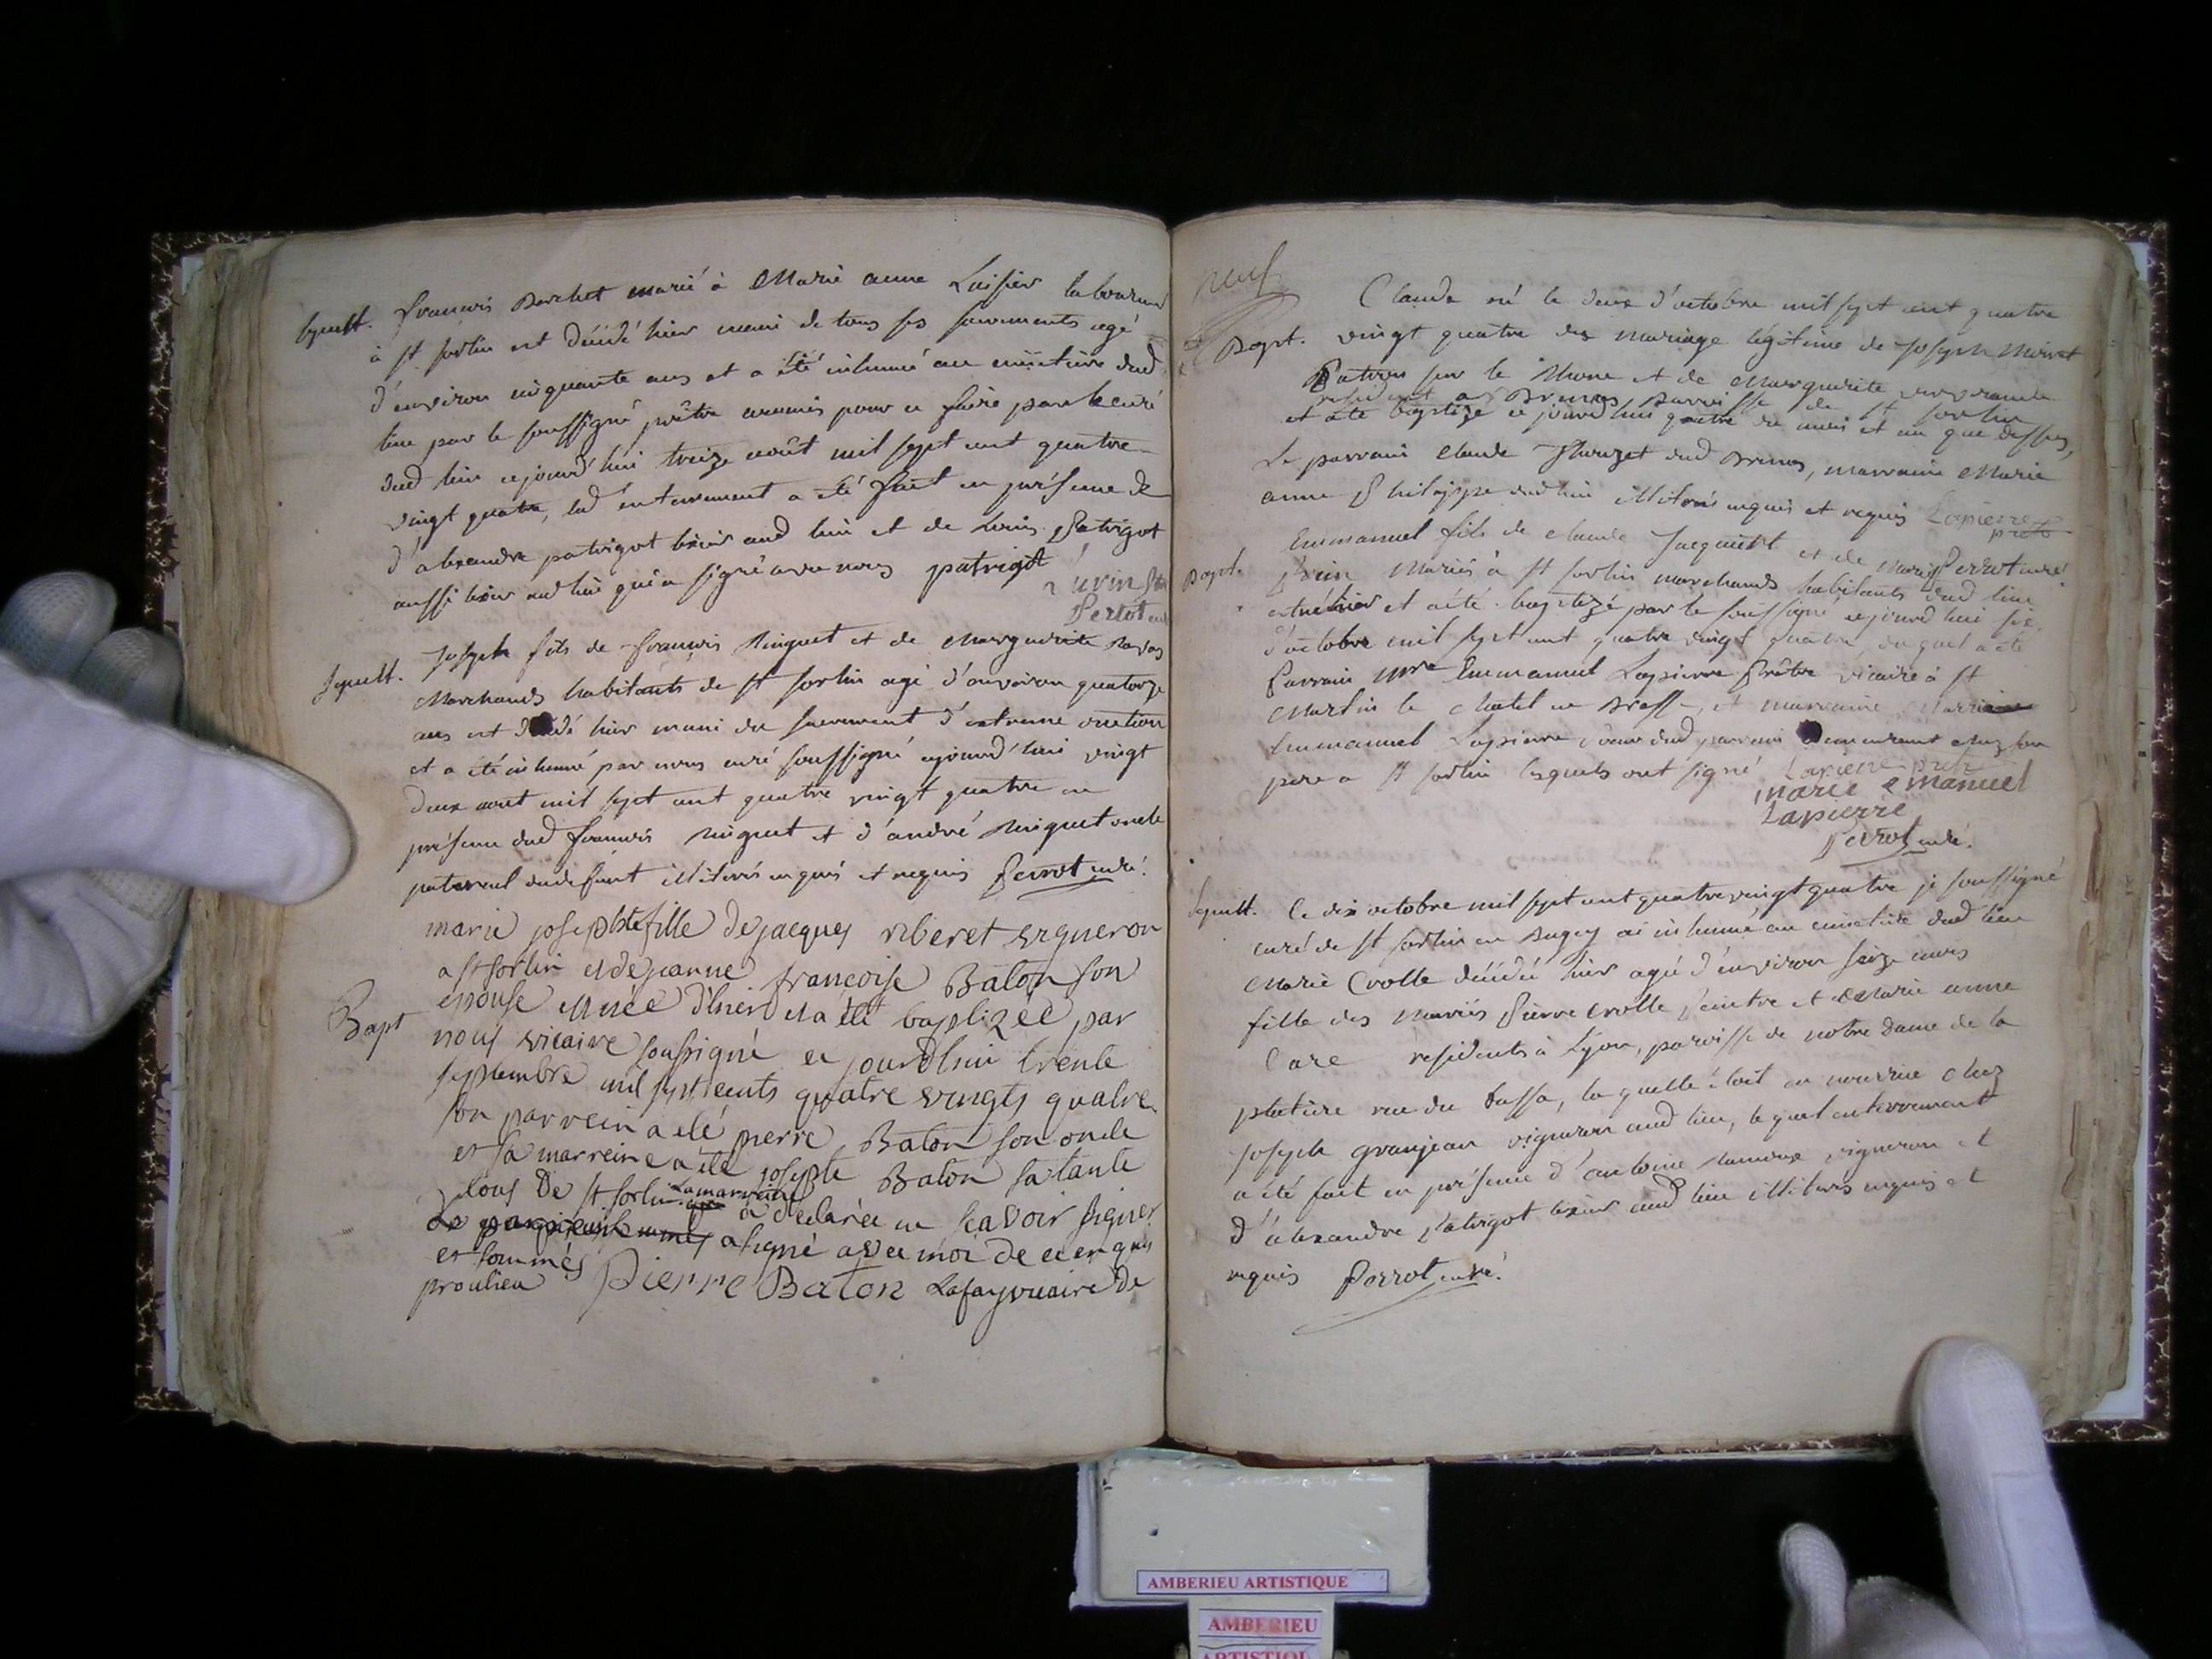 Sepult. françois marié à Marie anne laboureur
à st sorlin est décédé hier muni de tous ses sacrements agé
d'environ cinquante ans et a été inhumé au cimetiere dud
lieu par le soussigné prêtre commis pour ce faire par le curé
dud lieu cejourd'hui treize août mil sept cent quatre-
vingt quatre, led enterrement a été fait en présence de
d'alexandre patrigot aud lieu et de Patrigot
aussi aud lieu qui a signé avec nous patrigot
Perrot curé
Sepult. Joseph fils de françois et de Marguerite
Marchands habitants de st sorlin agé d'environ quatorze
ans est décédé hier muni du sacrement d'extreme onction
et a été inhumé par nous curé soussigné cejourd'hui vingt
deux aout mil sept cent quatre vingt quatre en
présence dud francois et d'andré oncle
paternel dud defunt illiterés enquis et requis Perrot curé.
marie josephte fille de jacques riberet vigneron
a st sorlin et de jeanne françoise Baton son
Bapt epouse est née d'hier et a été baptizée par
nous vicaire soussigné ce jourdhui trente
septembre mil sept cents quatre vingts quatre
son parrein a été pierre Baton son oncle
et sa marreine a été josephte Baton sa tante
tous De st sorlin la marreine a declarée ne scavoir signer
Le parrein a signé avec moi de ce enquis
et sommés
proulieu Pierre Baton Lafay vicaire De
neuf
Claude né le deux d'octobre mil sept cent quatre
Bapt. vingt quatre du mariage légitime de Joseph
Patron sur le Rhone et de Marguerite
résident a paroisse de st sorlin
et a été baptizé ce jourdhui quatre du mois et an que dessus,
Le parrain claude dud, marraine Marie
anne Philippe dud lieu illiterés enquis et requis Lapierre
ptre
Perrot curé
Emmanuel fils de claude et de Marie
Bapt. Mariés à st sorlin marchands habitants dud lieu
est né hier et a été baptizé par le soussigné cejourd'hui six
d'octobre mil sept cent quatre vingt quatre, du quel a été
Parrain Mre Emmanuel Lapierre Prêtre vicaire à st
Martin le chatel en Bresse, et marraine Marie
Emmanuel Lapierre soeur dud parrain Demeurant chez son
pere a st sorlin lesquels ont signé Lapierre ptre
marie emanuel
Lapierre
Perrot curé.
Sepult. Le dix octobre mil sept cent quatre vingt quatre je soussigné
curé de st sorlin en Bugey ai inhumé au cimetiere dud lieu
Marie Crolle décédée hier agée d'environ seize mois
fille des mariés Pierre crolle Peintre et de Marie anne
Care residents à Lyon, paroisse de notre dame de la
platiere rue du, la quelle étoit en nourrice chez
joseph granjean vigneron aud lieu, le quel enterrement
a été fait en présence d'antoine vigneron et
d'alexandre Patrigot aud lieu illiterés enquis et
requis Perrot curé.
AMBERIEU ARTISTIQUE
AMBERIEU
ARTISTIQU